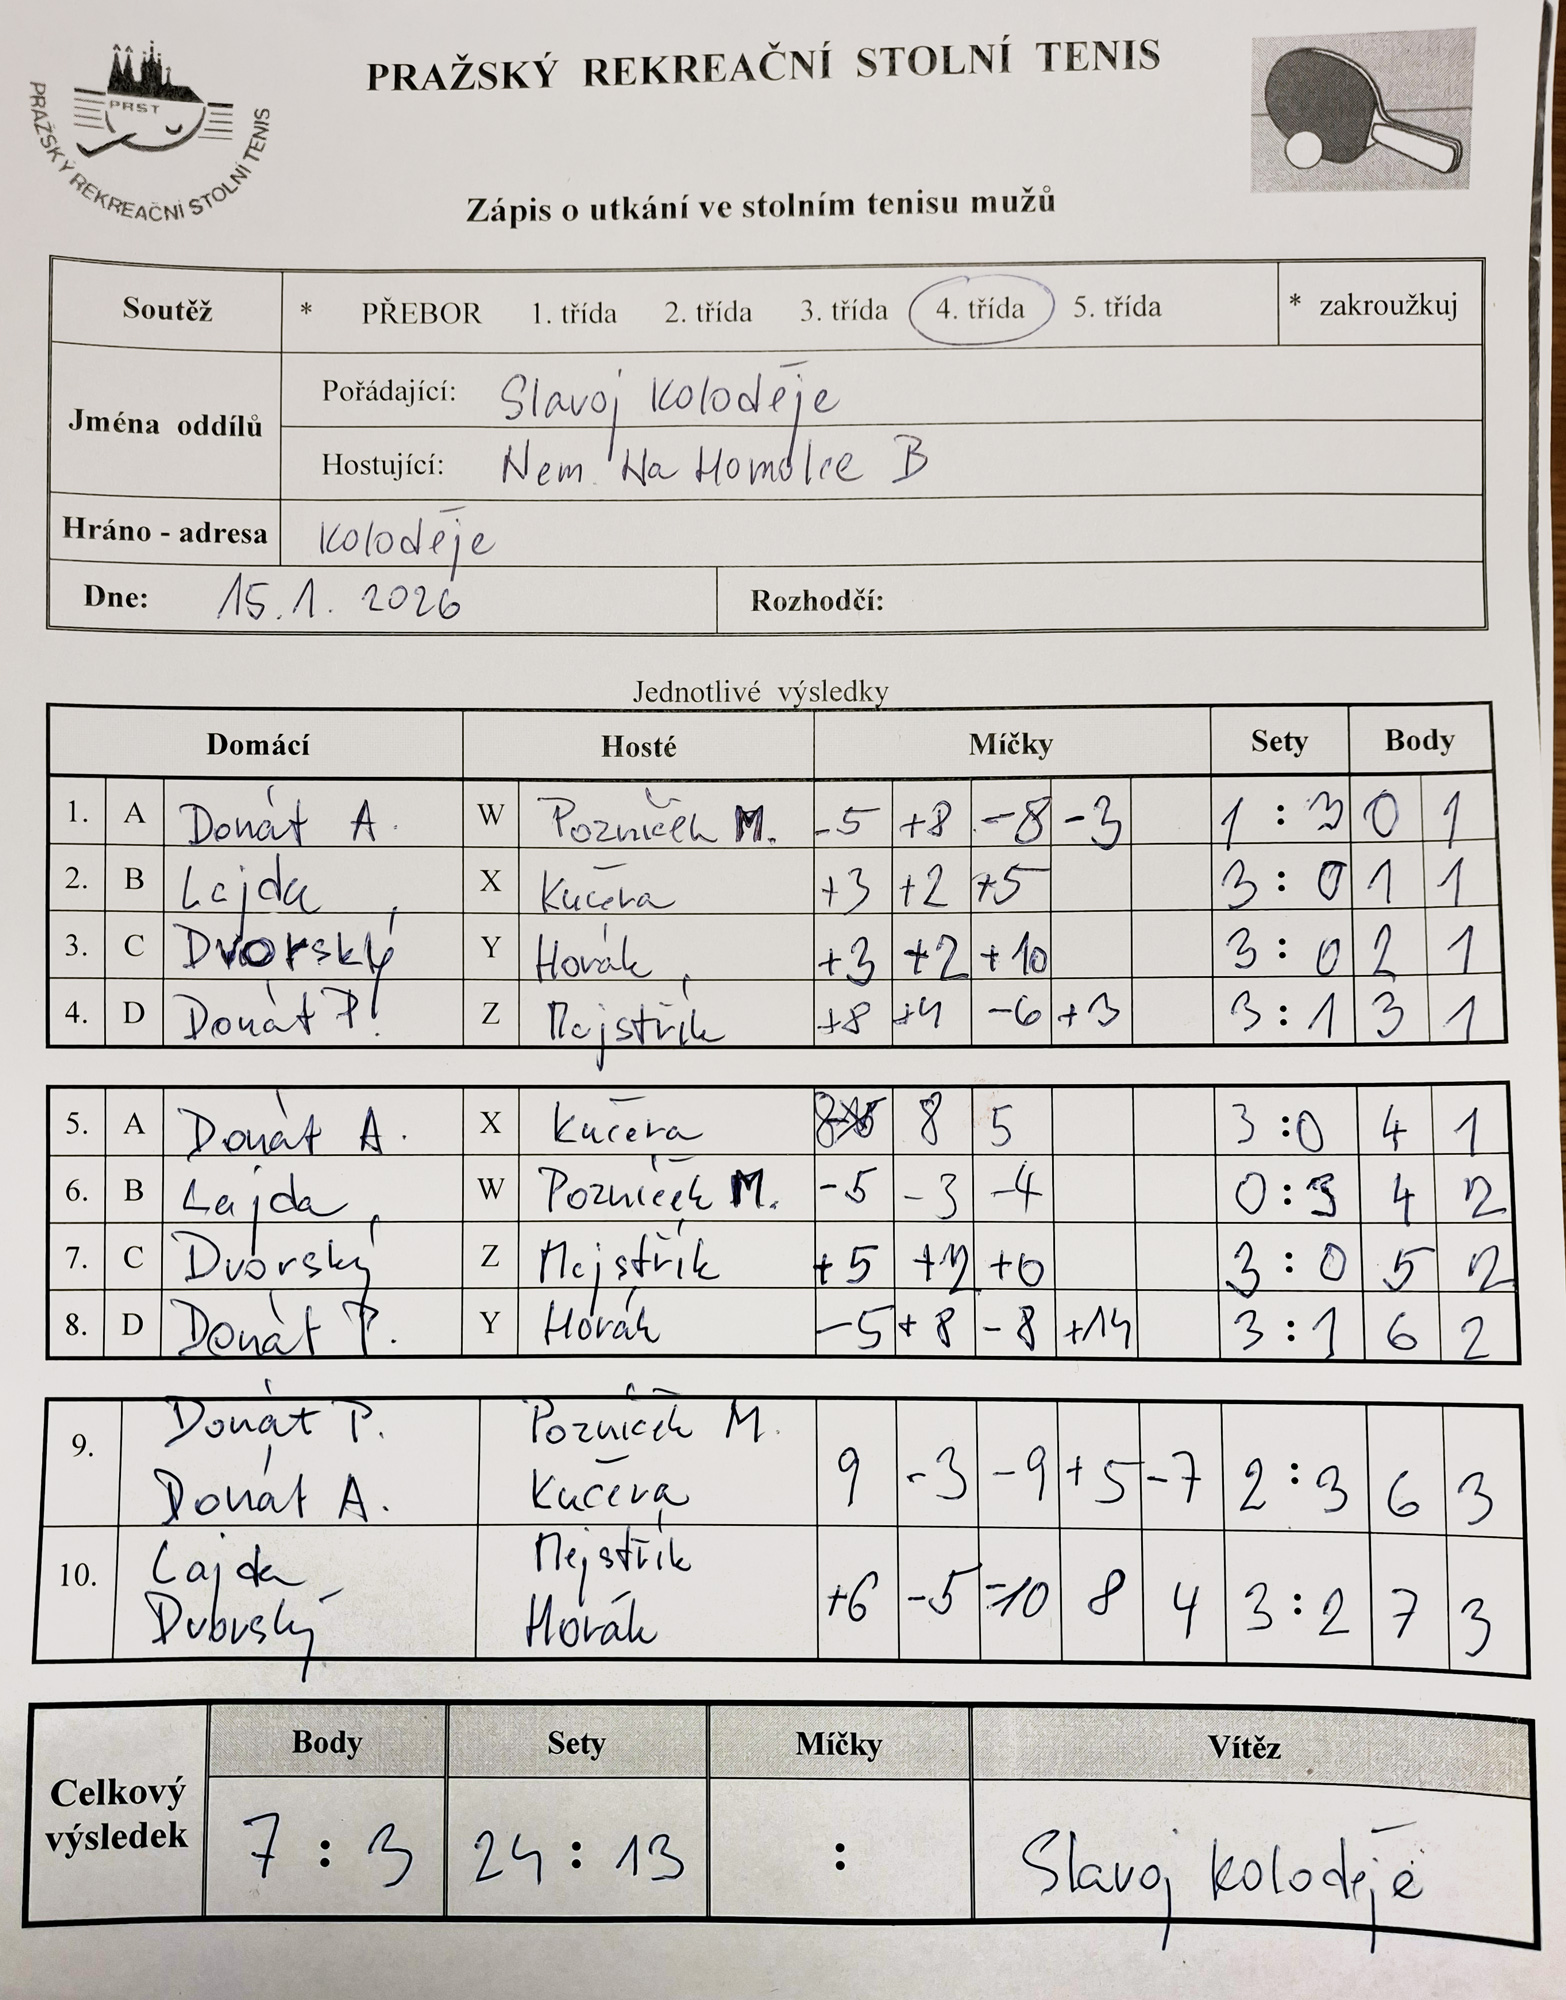 PRAŽSKÝ REKREAČNÍ STOLNÍ TENIS
PRST
PRAŽSKÝ REKREAČNÍ STOLNÍ TENIS
Zápis o utkání ve stolním tenisu mužů
Soutěž * PŘEBOR 1. třída 2. třída 3. třída 4. třída 5. třída * zakroužkuj
Jména oddílů
Pořádající: Slavoj Koloděje
Hostující: Nem. Na Homolce B
Hráno - adresa Koloděje
Dne: 15.1. 2026 Rozhodčí:
Jednotlivé výsledky
Domácí Hosté Míčky Sety Body
1. A Donát A. W Pozníček M. -5 +8 -8 -3 1 : 3 0 1
2. B Lajda X Kučera +3 +2 +5 3 : 0 1 1
3. C Dvorský Y Horák +3 +2 +10 3 : 0 2 1
4. D Donát P. Z Mejstřík +8 +4 -6 +3 3 : 1 3 1
5. A Donát A. X Kučera 8 8 5 3 : 0 4 1
6. B Lajda W Pozníček M. -5 -3 -4 0 : 3 4 2
7. C Dvorský Z Mejstřík +5 +12 +0 3 : 0 5 2
8. D Donát P. Y Horák -5 +8 -8 +14 3 : 1 6 2
Donát P. Pozníček M.
9. 9 -3 -9 +5 -7 2 : 3 6 3
Donát A. Kučera
Lajda Mejstřík
10. +6 -5 -10 8 4 3 : 2 7 3
Dvorský Horák
Celkový výsledek
Body Sety Míčky Vítěz
7 : 3 24 : 13 : Slavoj Koloděje